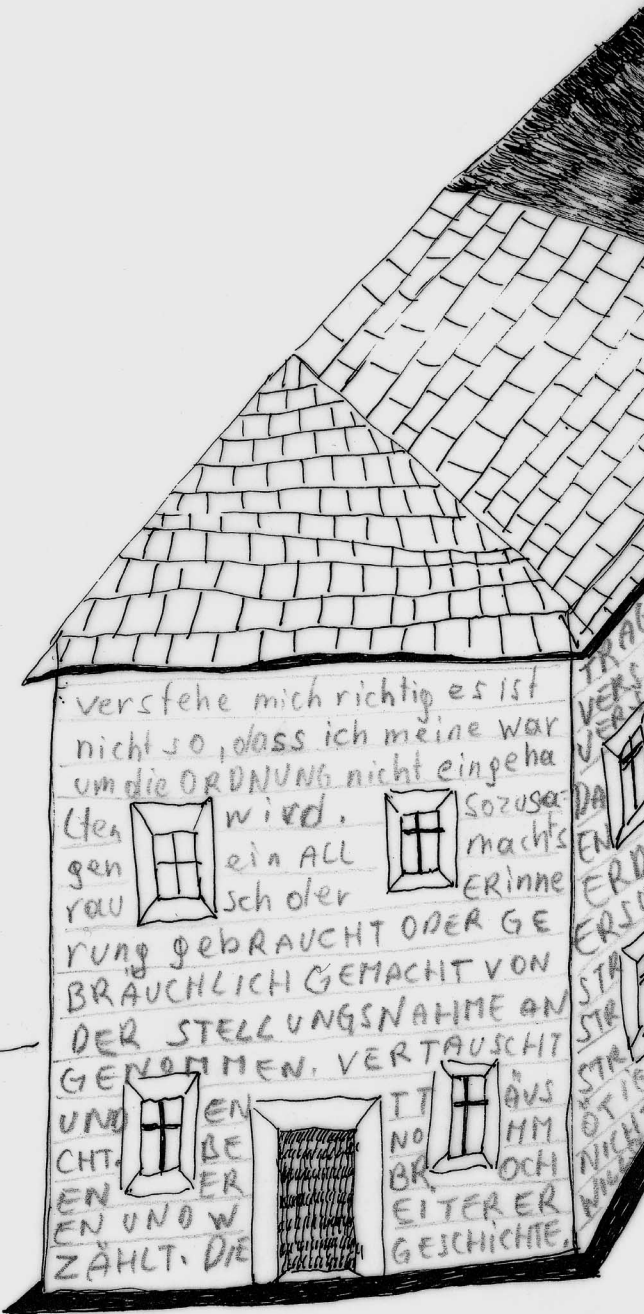 verstehe mich richtig es ist
nicht so, dass ich meine war
um die ORDNUNG nicht eingeha
lten wird. Sozusa=
gen ein ALL machts
rau sch der ERinne
rung gebRAUCHT ODER GE
BRÄUCHLICH GEMACHT VON
DER STELLUNGSNAHME AN
GENOMMEN. VERTAUSCHT
UND EN TT ÄUS
CHT. BE NO MM
EN ER BR OCH
EN UND W EITER ER
ZÄHLT. DIE GESCHICHTE.
TRAG
VERS
VER
DA
EN
ERD
STR
STR
STR
NICH